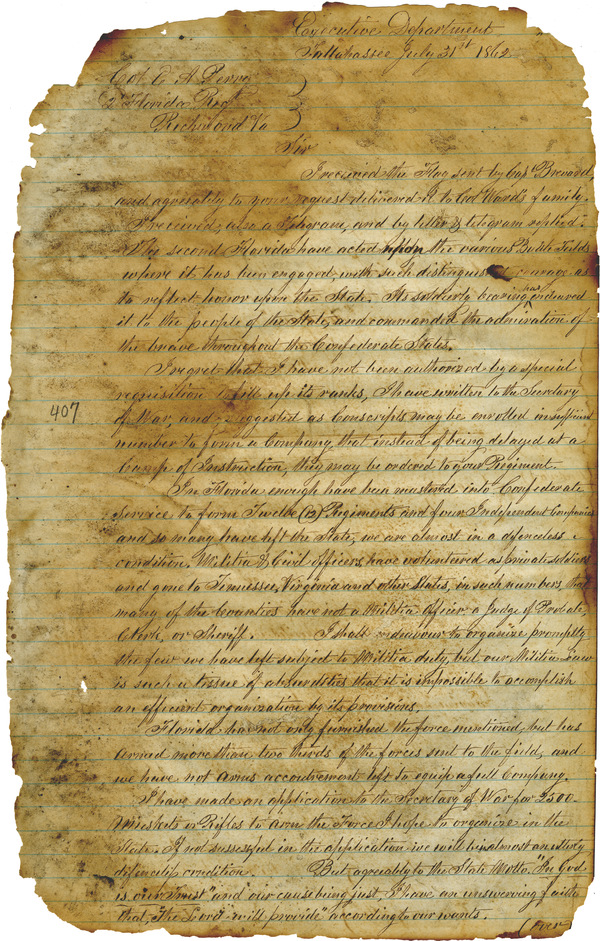 Executive Department
Tallahassee July 31st 1862
Col. E A Perry
2d Florida Regt
Richmond Va
Sir
I received the Flag sent by Cap Brevard
and agreeably to your request delivered it to Col Ward's family.
I received, also a Telegram, and by letter & telegram replied.
The second Florida have acted upon the various Battle Fields
where it has been engaged, with such distinguished courage as
to reflect honor upon the State. Its soldierly bearing has endeared
it to the people of the State, and commanded the admiration of
the brave throughout the Confederate States.
I regret that I have not been authorized by a special
requisition to fill up its ranks, I have written to the Secretary
of War, and suggested as Conscripts may be enrolled in sufficient
number to form a Company, that instead of being delayed at a
Camp of Instruction, they may be ordered to your Regiment.
407
In Florida enough have been mustered into Confederate
Service to form Twelve (12) Regiments and four Independent Companies
and so many have left the State, we are almost in a defenceless
condition. Militia & Civil officers, have volunteered as private soldiers
and gone to Tennessee, Virginia and other States, in such numbers, that
many of the Counties have not a Militia Officer a Judge of Probate,
Clerk, or Sheriff. I shall endeavour to organize promptly
the few we have left subject to Militia duty, but our Militia Law
is such a tissue of absurdities that it is impossible to accomplish
an efficient organization by its provisions.
Florida has not only furnished the force mentioned, but has
armed more than two thirds of the forces sent to the field, and
we have not arms accoutrement left to equip a full Company.
I have made an application to the Secretary of War for 2500
Muskets or Rifles to arm the Force I hope to organize in the
State. If not successful in the application we will be almost an utterly
condition. But agreeably to the State Motto. "In God
is our Trust" and our cause being just, I have an unswerving faith
that, "The Lord will provide" according to our wants.
(Over)